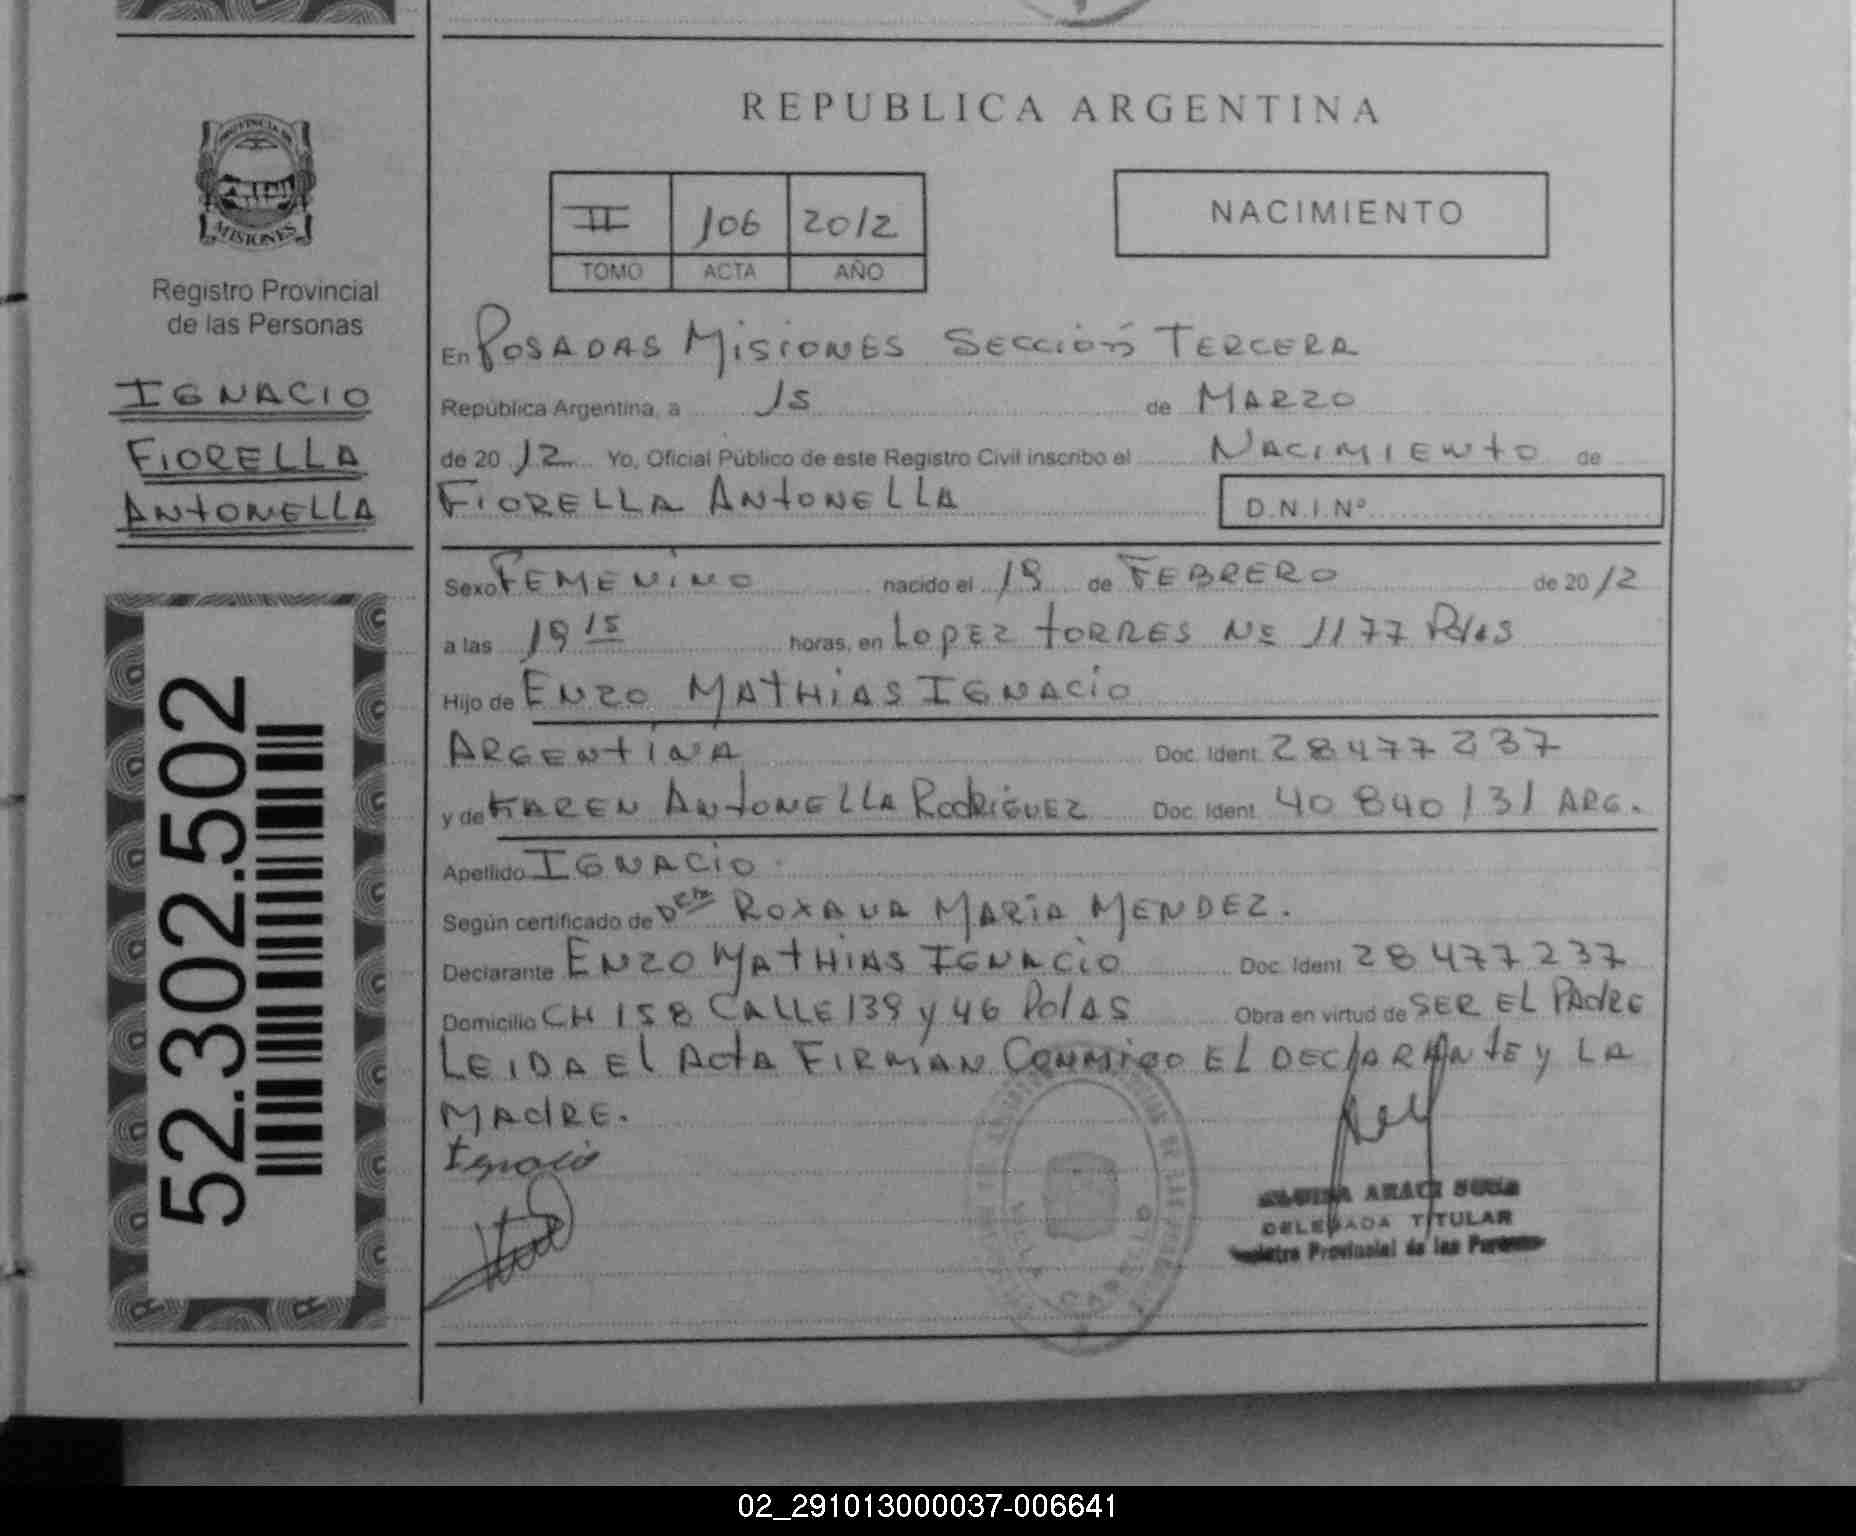 REPUBLICA ARGENTINA
PROVINCIA DE
MISIONES
Registro Provincial
de las Personas
IGNACIO
FIORELLA
ANTONELLA
52.302.502
II 106 2012
TOMO ACTA AÑO
NACIMIENTO
En POSADAS MISIONES SECCIÓN TERCERA
República Argentina, a 15 de MARZO
de 20 12 Yo, Oficial Público de este Registro Civil inscribo el NACIMIENTO de
FIORELLA ANTONELLA D.N.I.Nº
Sexo FEMENINO nacido el 19 de FEBRERO de 20 12
a las 19 15 horas, en LOPEZ TORRES Nº 1177 Pdas
Hijo de ENZO MATHIAS IGNACIO
ARGENTINA Doc. Ident. 28477237
y de KAREN ANTONELLA RODRIGUEZ Doc. Ident. 40 840 131 ARG.
Apellido IGNACIO
Según certificado de ROXANA MARIA MENDEZ.
Declarante ENZO MATHIAS IGNACIO Doc. Ident. 28477237
Domicilio CH 158 CALLE 139 y 46 PdAS Obra en virtud de SER EL PADRE
LEIDA El ACTA FIRMAN CONMIGO EL DECLARANTE y LA
MADRE.
Ignacio
ARACI
DELEGADA TITULAR
Registro Provincial de las Personas
02_291013000037-006641